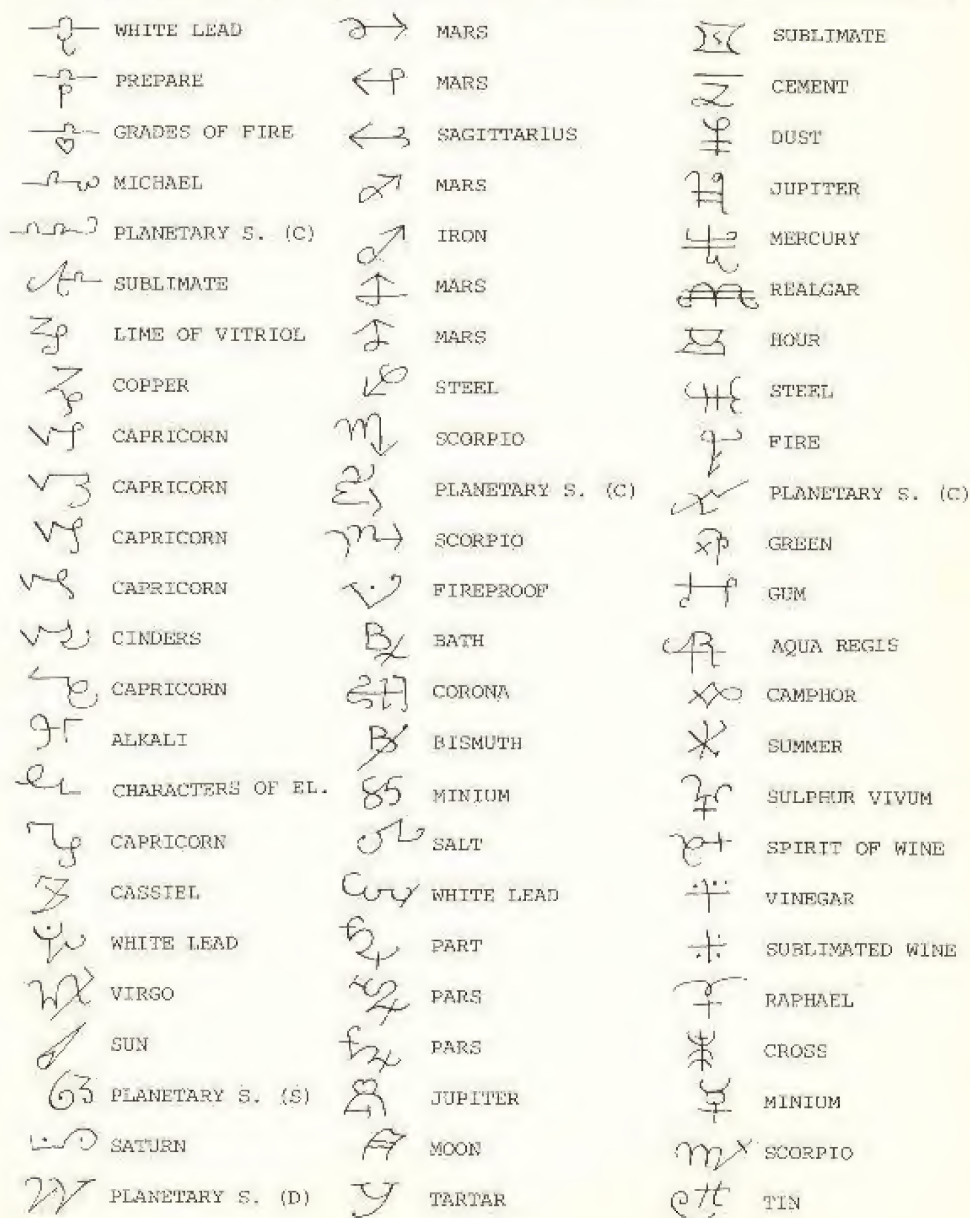 WHITE LEAD
PREPARE
GRADES OF FIRE
MICHAEL
PLANETARY S. (C)
SUBLIMATE
LIME OF VITRIOL
COPPER
CAPRICORN
CAPRICORN
CAPRICORN
CAPRICORN
CINDERS
CAPRICORN
ALKALI
CHARACTERS OF EL.
CAPRICORN
CASSIEL
WHITE LEAD
VIRGO
SUN
PLANETARY S. (S)
SATURN
PLANETARY S. (D)
MARS
MARS
SAGITTARIUS
MARS
IRON
MARS
MARS
STEEL
SCORPIO
PLANETARY S. (C)
SCORPIO
FIREPROOF
BATH
CORONA
BISMUTH
MINIUM
SALT
WHITE LEAD
PART
PARS
PARS
JUPITER
MOON
TARTAR
SUBLIMATE
CEMENT
DUST
JUPITER
MERCURY
REALGAR
HOUR
STEEL
FIRE
PLANETARY S. (C)
GREEN
GUM
AQUA REGIS
CAMPHOR
SUMMER
SULPHUR VIVUM
SPIRIT OF WINE
VINEGAR
SUBLIMATED WINE
RAPHAEL
CROSS
MINIUM
SCORPIO
TIN